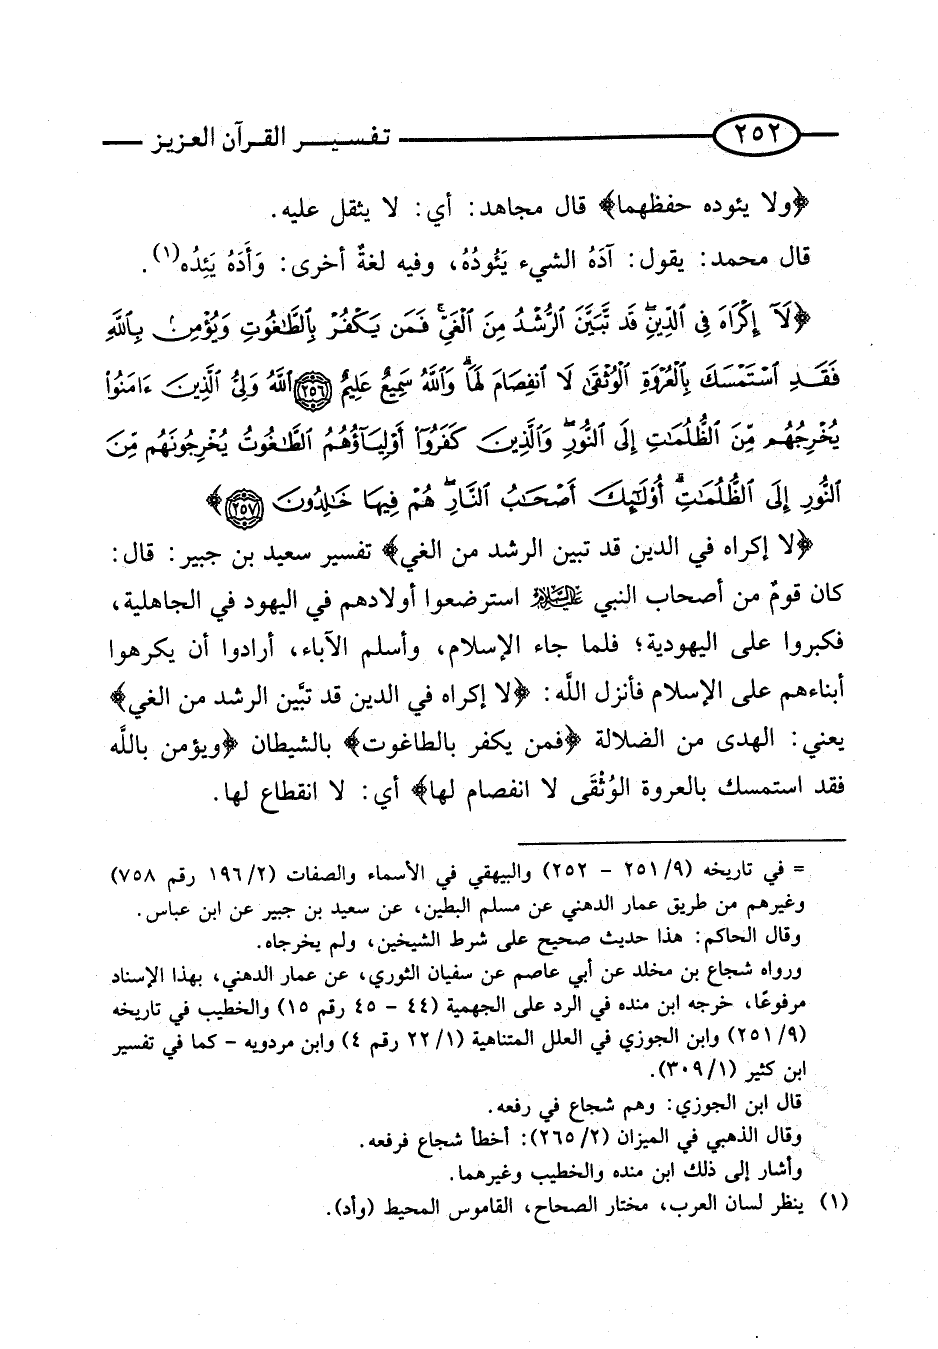 ٢٥٢ تفسير القرآن العزيز
﴿ولا يئوده حفظهما﴾ قال مجاهد: أي: لا يثقل عليه.
قال محمد: يقول: آدَهُ الشيء يَئُودُهُ، وفيه لغةٌ أخرى: وَأَدَهُ يَئِدُه(١).
﴿لَآ إِكْرَاهَ فِى ٱلدِّينِۖ قَد تَّبَيَّنَ ٱلرُّشْدُ مِنَ ٱلْغَىِّۚ فَمَن يَكْفُرْ بِٱلطَّٰغُوتِ وَيُؤْمِنۢ بِٱللَّهِ
فَقَدِ ٱسْتَمْسَكَ بِٱلْعُرْوَةِ ٱلْوُثْقَىٰ لَا ٱنفِصَامَ لَهَاۗ وَٱللَّهُ سَمِيعٌ عَلِيمٌ ٢٥٦ ٱللَّهُ وَلِىُّ ٱلَّذِينَ ءَامَنُوا۟
يُخْرِجُهُم مِّنَ ٱلظُّلُمَٰتِ إِلَى ٱلنُّورِۖ وَٱلَّذِينَ كَفَرُوٓا۟ أَوْلِيَآؤُهُمُ ٱلطَّٰغُوتُ يُخْرِجُونَهُم مِّنَ
ٱلنُّورِ إِلَى ٱلظُّلُمَٰتِۗ أُو۟لَٰٓئِكَ أَصْحَٰبُ ٱلنَّارِۖ هُمْ فِيهَا خَٰلِدُونَ ٢٥٧﴾
﴿لا إكراه في الدين قد تبين الرشد من الغي﴾ تفسير سعيد بن جبير: قال:
كان قومٌ من أصحاب النبي عليه السلام استرضعوا أولادهم في اليهود في الجاهلية،
فكبروا على اليهودية؛ فلما جاء الإسلام، وأسلم الآباء، أرادوا أن يكرهوا
أبناءهم على الإسلام فأنزل اللَّه: ﴿لا إكراه في الدين قد تبَّين الرشد من الغي﴾
يعني: الهدى من الضلالة ﴿فمن يكفر بالطاغوت﴾ بالشيطان ﴿ويؤمن باللَّه
فقد استمسك بالعروة الوُثْقَى لا انفصام لها﴾ أي: لا انقطاع لها.
= في تاريخه (٩/ ٢٥١ - ٢٥٢) والبيهقي في الأسماء والصفات (٢/ ١٩٦ رقم ٧٥٨)
وغيرهم من طريق عمار الدهني عن مسلم البطين، عن سعيد بن جبير عن ابن عباس.
وقال الحاكم: هذا حديث صحيح على شرط الشيخين، ولم يخرجاه.
ورواه شجاع بن مخلد عن أبي عاصم عن سفيان الثوري، عن عمار الدهني، بهذا الإسناد
مرفوعًا، خرجه ابن منده في الرد على الجهمية (٤٤ - ٤٥ رقم ١٥) والخطيب في تاريخه
(٩/ ٢٥١) وابن الجوزي في العلل المتناهية (١/ ٢٢ رقم ٤) وابن مردويه - كما في تفسير
ابن كثير (١/ ٣٠٩).
قال ابن الجوزي: وهم شجاع في رفعه.
وقال الذهبي في الميزان (٢/ ٢٦٥): أخطأ شجاع فرفعه.
وأشار إلى ذلك ابن منده والخطيب وغيرهما.
(١) ينظر لسان العرب، مختار الصحاح، القاموس المحيط (وأد).